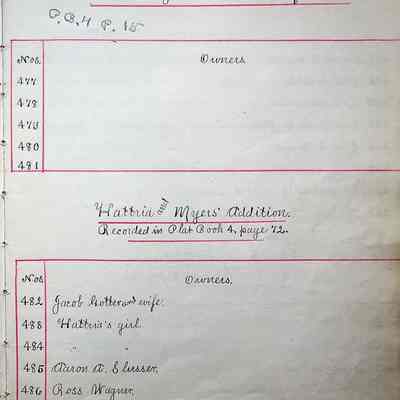 P.B.4 P. 15
Nos. Owners.
477
478
479
480
481
Hattria and Myers' Addition.
Recorded in Plat Book 4, page 72.
Nos. Owners.
482 Jacob and wife.
483 Hattria's girl.
484 " "
485 Aaron A. Slusser.
486 Ross Wagner.